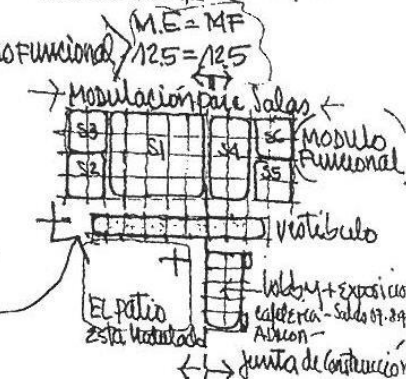 M.E = MF
Funcional 12.5 = 12.5
→ Modulación para Salas ←
S3 S1 S4 S6
S2 S5
Modulo
Funcional
Vestíbulo
El patio
Está modulado
lobby + exposicio
cafetería - Salas 07.89
Junta de Construcción